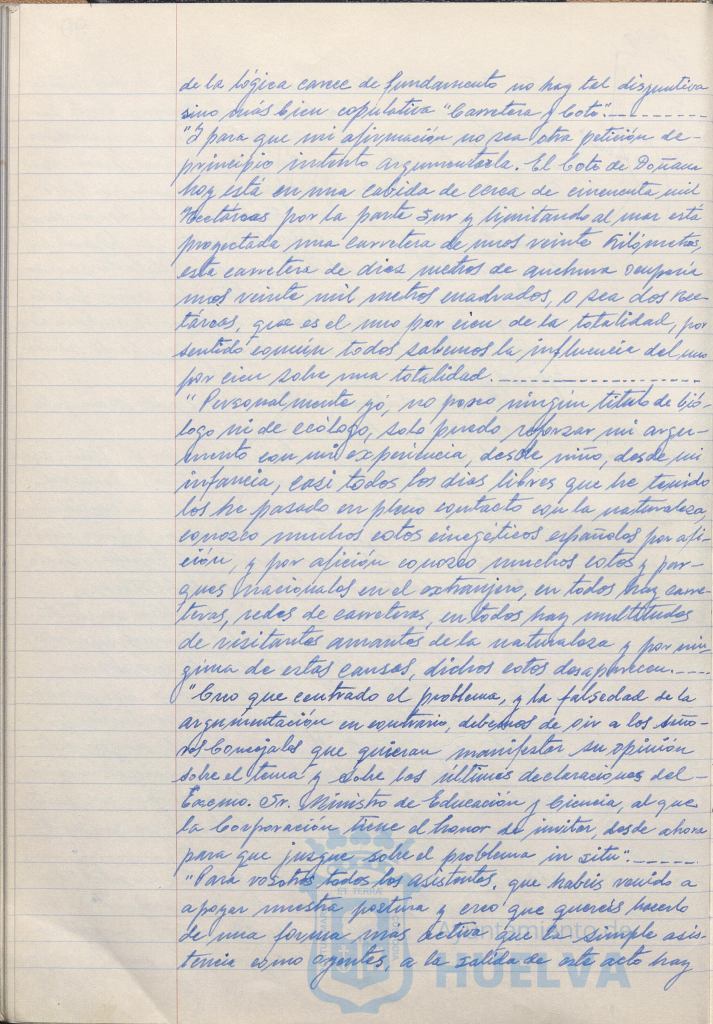 de la lógica carece de fundamento no hay tal disyuntiva
sino más bien copulativa "Carretera y Coto".
"Y para que mi afirmación no sea otra petición de
principio intento argumentarla. El Coto de Doñana
hoy está en una cabida de cerca de cincuenta mil
Hectáreas por la parte Sur y limitando al mar está
proyectada una carretera de unos veinte Kilómetros,
esta carretera de diez metros de anchura ocuparía
unos veinte mil metros cuadrados, o sea dos Hec-
táreas, que es el uno por cien de la totalidad, por
sentido común todos sabemos la influencia del uno
por cien sobre una totalidad.
"Personalmente yó, no poseo ningún título de bió-
logo ni de ecólogo, solo puedo reforzar mi argu-
mento con mi experiencia, desde niño, desde mi
infancia, casi todos los dias libres que he tenido
los he pasado en pleno contacto con la naturaleza,
conozco muchos cotos cinegéticos españoles por afi-
ción, y por afición conozco muchos cotos y par-
ques nacionales en el extranjero, en todos hay carre-
teras, redes de carreteras, en todos hay multitudes
de visitantes amantes de la naturaleza y por nin-
guna de estas causas, dichos cotos desaparecen.
"Creo que centrado el problema, y la falsedad de la
argumentación en contrario, debemos de oir a los seño-
res Concejales que quieran manifestar su opinión
sobre el tema y sobre las últimas declaraciones del
Excmo. Sr. Ministro de Educación y Ciencia, al que
la Corporación tiene el honor de invitar, desde ahora
para que juzgue sobre el problema in situ".
"Para vosotros todos los asistentes, que habeis venido a
apoyar nuestra postura y creo que quereis hacerlo
de una forma más activa que la simple asis-
tencia como oyentes, a la salida de este acto hay
Ayuntamiento de
HUELVA